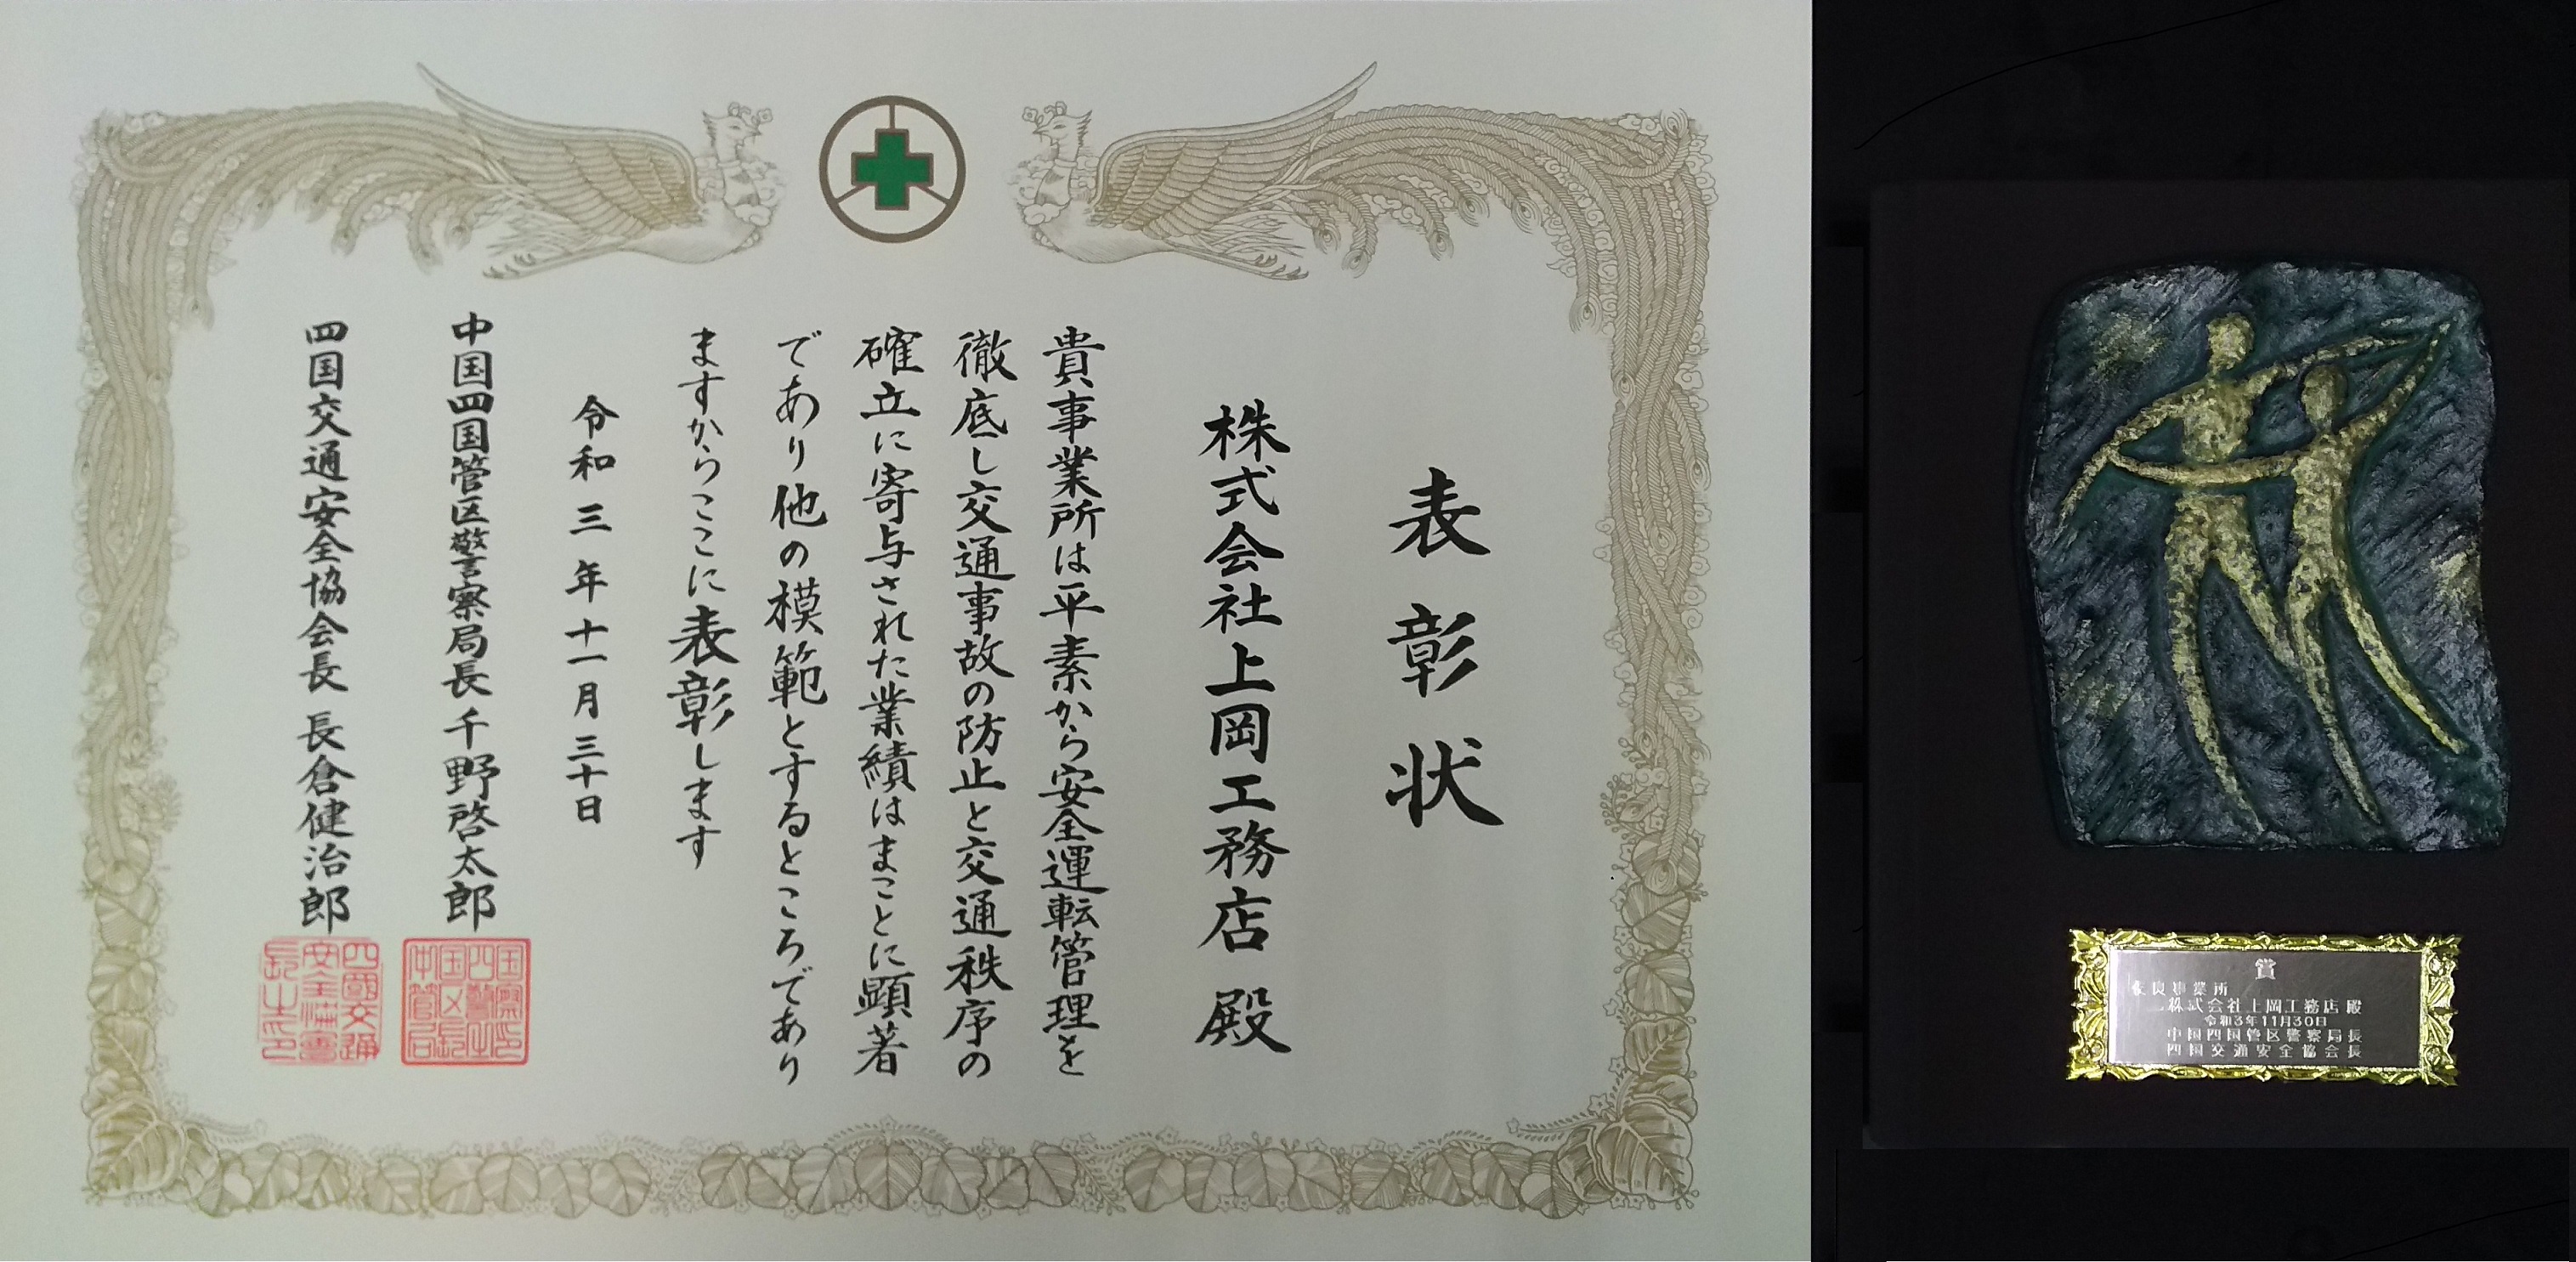 表彰状
株式会社上岡工務店 殿
貴事業所は平素から安全運転管理を
徹底し交通事故の防止と交通秩序の
確立に寄与された業績はまことに顕著
であり他の模範とするところであり
ますからここに表彰します
令和三年十一月三十日
中国四国管区警察局長 千野啓太郎
四国交通安全協会長 長倉健治郎
賞
優良事業所
株式会社上岡工務店 殿
令和3年11月30日
中国四国管区警察局長
四国交通安全協会長